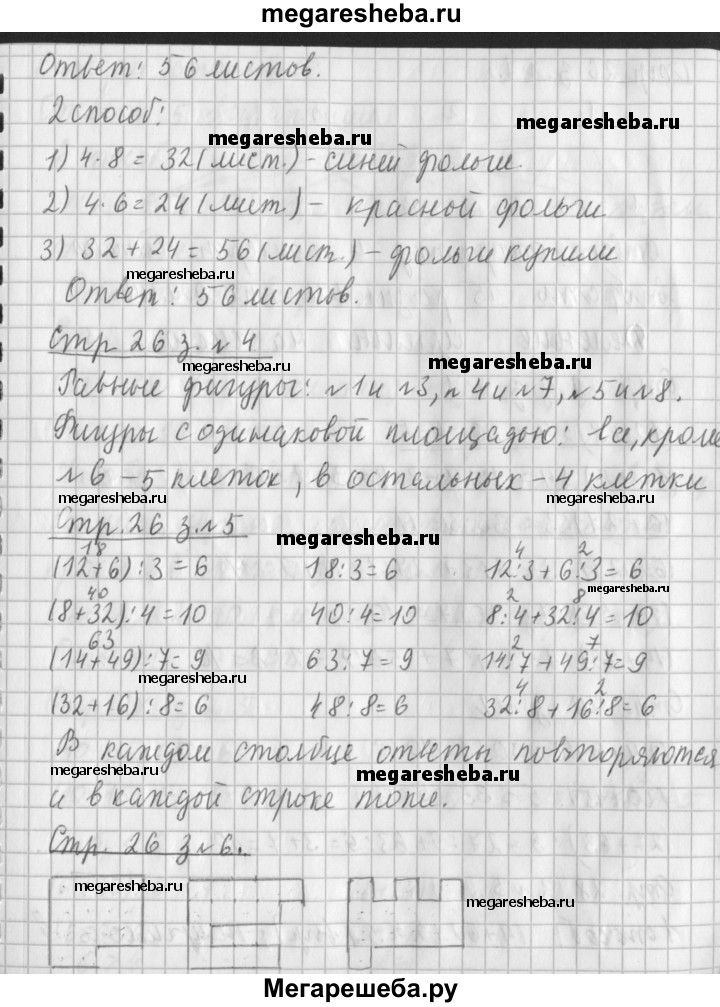 megaresheba.ru
Ответ: 56 листов.
2 способ:
megaresheba.ru
megaresheba.ru
1) 4·8 = 32 (лист.) - синей фольги.
2) 4·6 = 24 (лист) - красной фольги
3) 32 + 24 = 56 (лист.) - фольги купили
megaresheba.ru
Ответ: 56 листов.
Стр 26 з. №4
megaresheba.ru
megaresheba.ru
Равные фигуры: №1 и №3, №4 и №7, №5 и №8.
Фигуры с одинаковой площадью: все, кроме
№6 - 5 клеток, в остальных - 4 клетки
megaresheba.ru
megaresheba.ru
Стр. 26 з. №5
megaresheba.ru
18 4 2
(12+6):3=6 18:3=6 12:3+6:3=6
megaresheba.ru
40 2 8
(8+32):4=10 40:4=10 8:4+32:4=10
63 2 7
(14+49):7=9 63:7=9 14:7+49:7=9
megaresheba.ru
4 2
(32+16):8=6 48:8=6 32:8+16:8=6
В каждом столбце ответы повторяются
megaresheba.ru
megaresheba.ru
и в каждой строке тоже.
Стр. 26 з №6.
megaresheba.ru
megaresheba.ru
Мегарешеба.ру